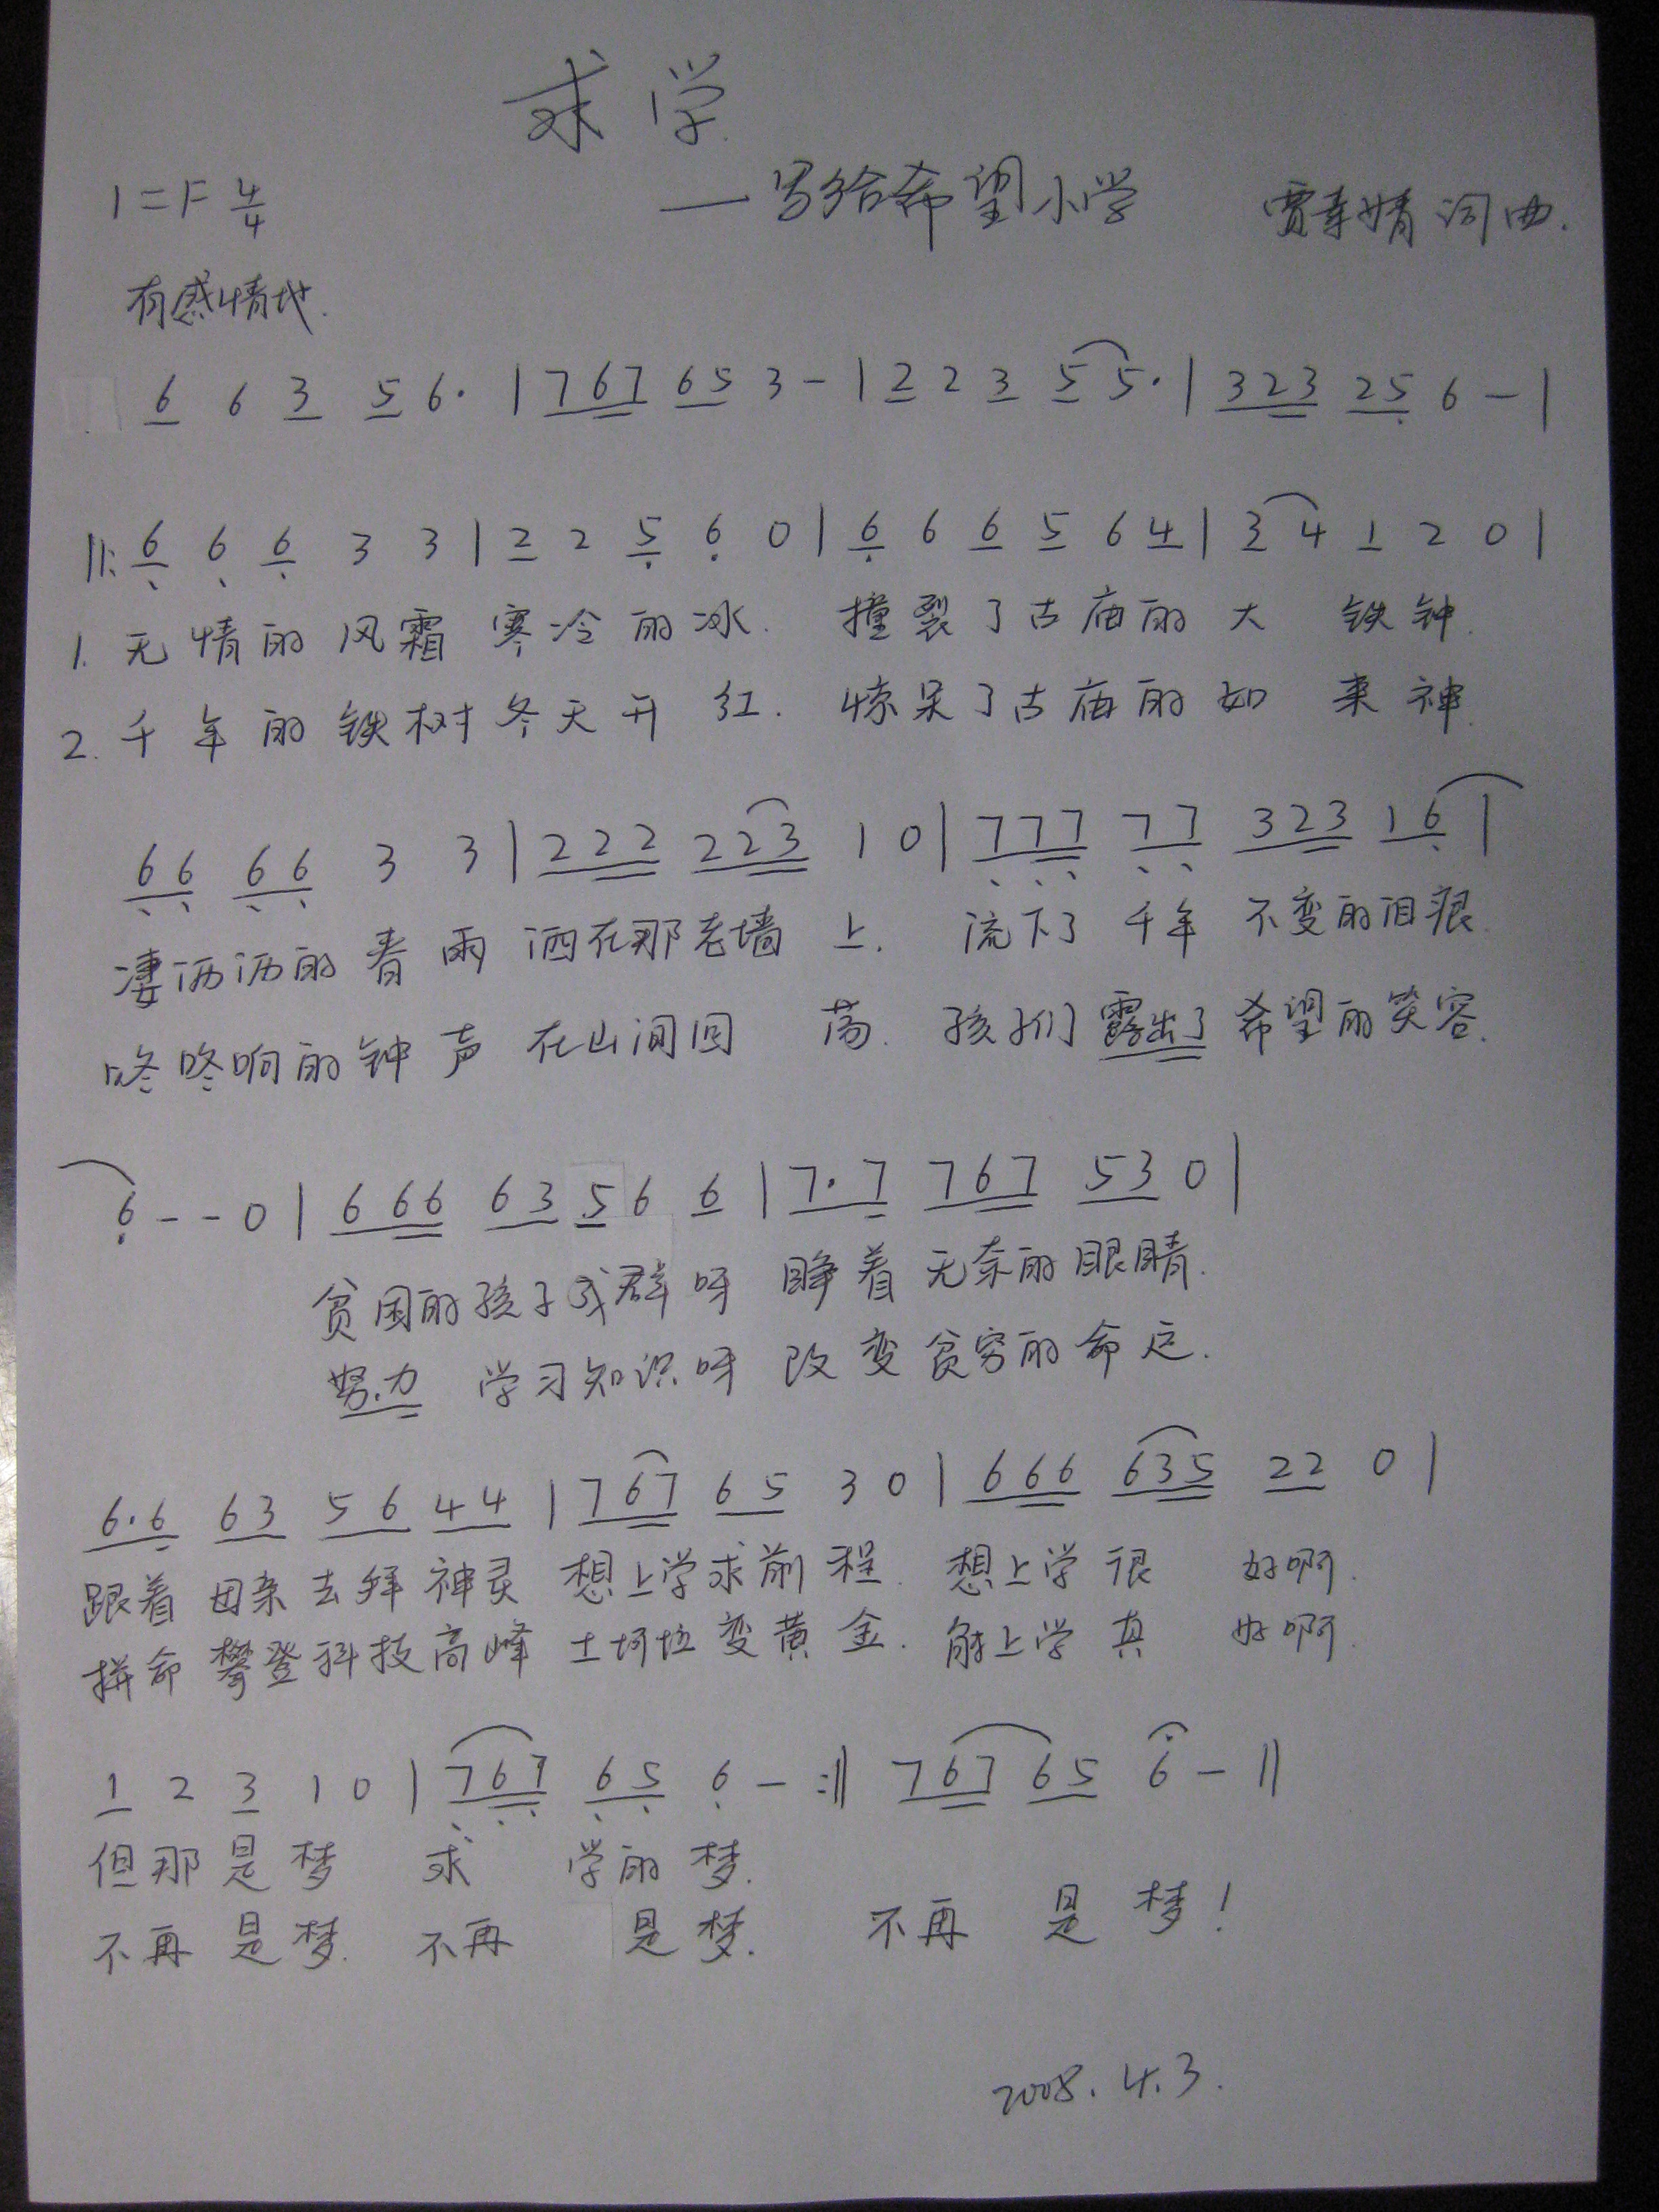 求学
——写给希望小学
1=F 4/4
贾春婧 词曲.
有感情地.
6 6 3 5 6· | 7 6 7 6 5 3 - | 2 2 3 5 5· | 3 2 3 2 5 6 - |
‖: 6 6 6 3 3 | 2 2 5 6 0 | 6 6 6 5 6 4 | 3 4 1 2 0 |
1. 无情的风霜寒冷的冰. 撞裂了古庙的大铁钟.
2. 千年的铁树冬天开红. 惊呆了古庙的如来神.
6 6 6 6 3 3 | 2 2 2 2 2 3 1 0 | 7 7 7 7 7 3 2 3 1 6 |
凄洒洒的春雨洒在那老墙上. 流下了千年不变的泪痕.
咚咚响的钟声在山间回荡. 孩子们露出了希望的笑容.
6 - - 0 | 6 6 6 6 3 5 6 6 | 7· 7 7 6 7 5 3 0 |
贫困的孩子成群呀 睁着无奈的眼睛.
努力学习知识呀 改变贫穷的命运.
6· 6 6 3 5 6 4 4 | 7 6 7 6 5 3 0 | 6 6 6 6 3 5 2 2 0 |
跟着母亲去拜神灵 想上学求前程. 想上学很好啊.
拼命攀登科技高峰 土坷垃变黄金. 能上学真好啊.
1 2 3 1 0 | 7 6 7 6 5 6 - :‖ 7 6 7 6 5 6 - ‖
但那是梦 求学的梦.
不再是梦. 不再是梦. 不再是梦!
2008.4.3.